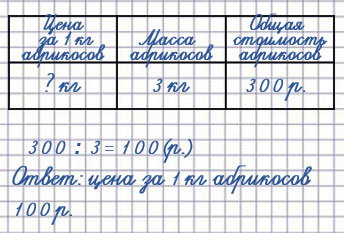 Цена за 1 кг абрикосов | Масса абрикосов | Общая стоимость абрикосов
? кг | 3 кг | 300 р.
300 : 3 = 100 (р.)
Ответ: цена за 1 кг абрикосов
100 р.